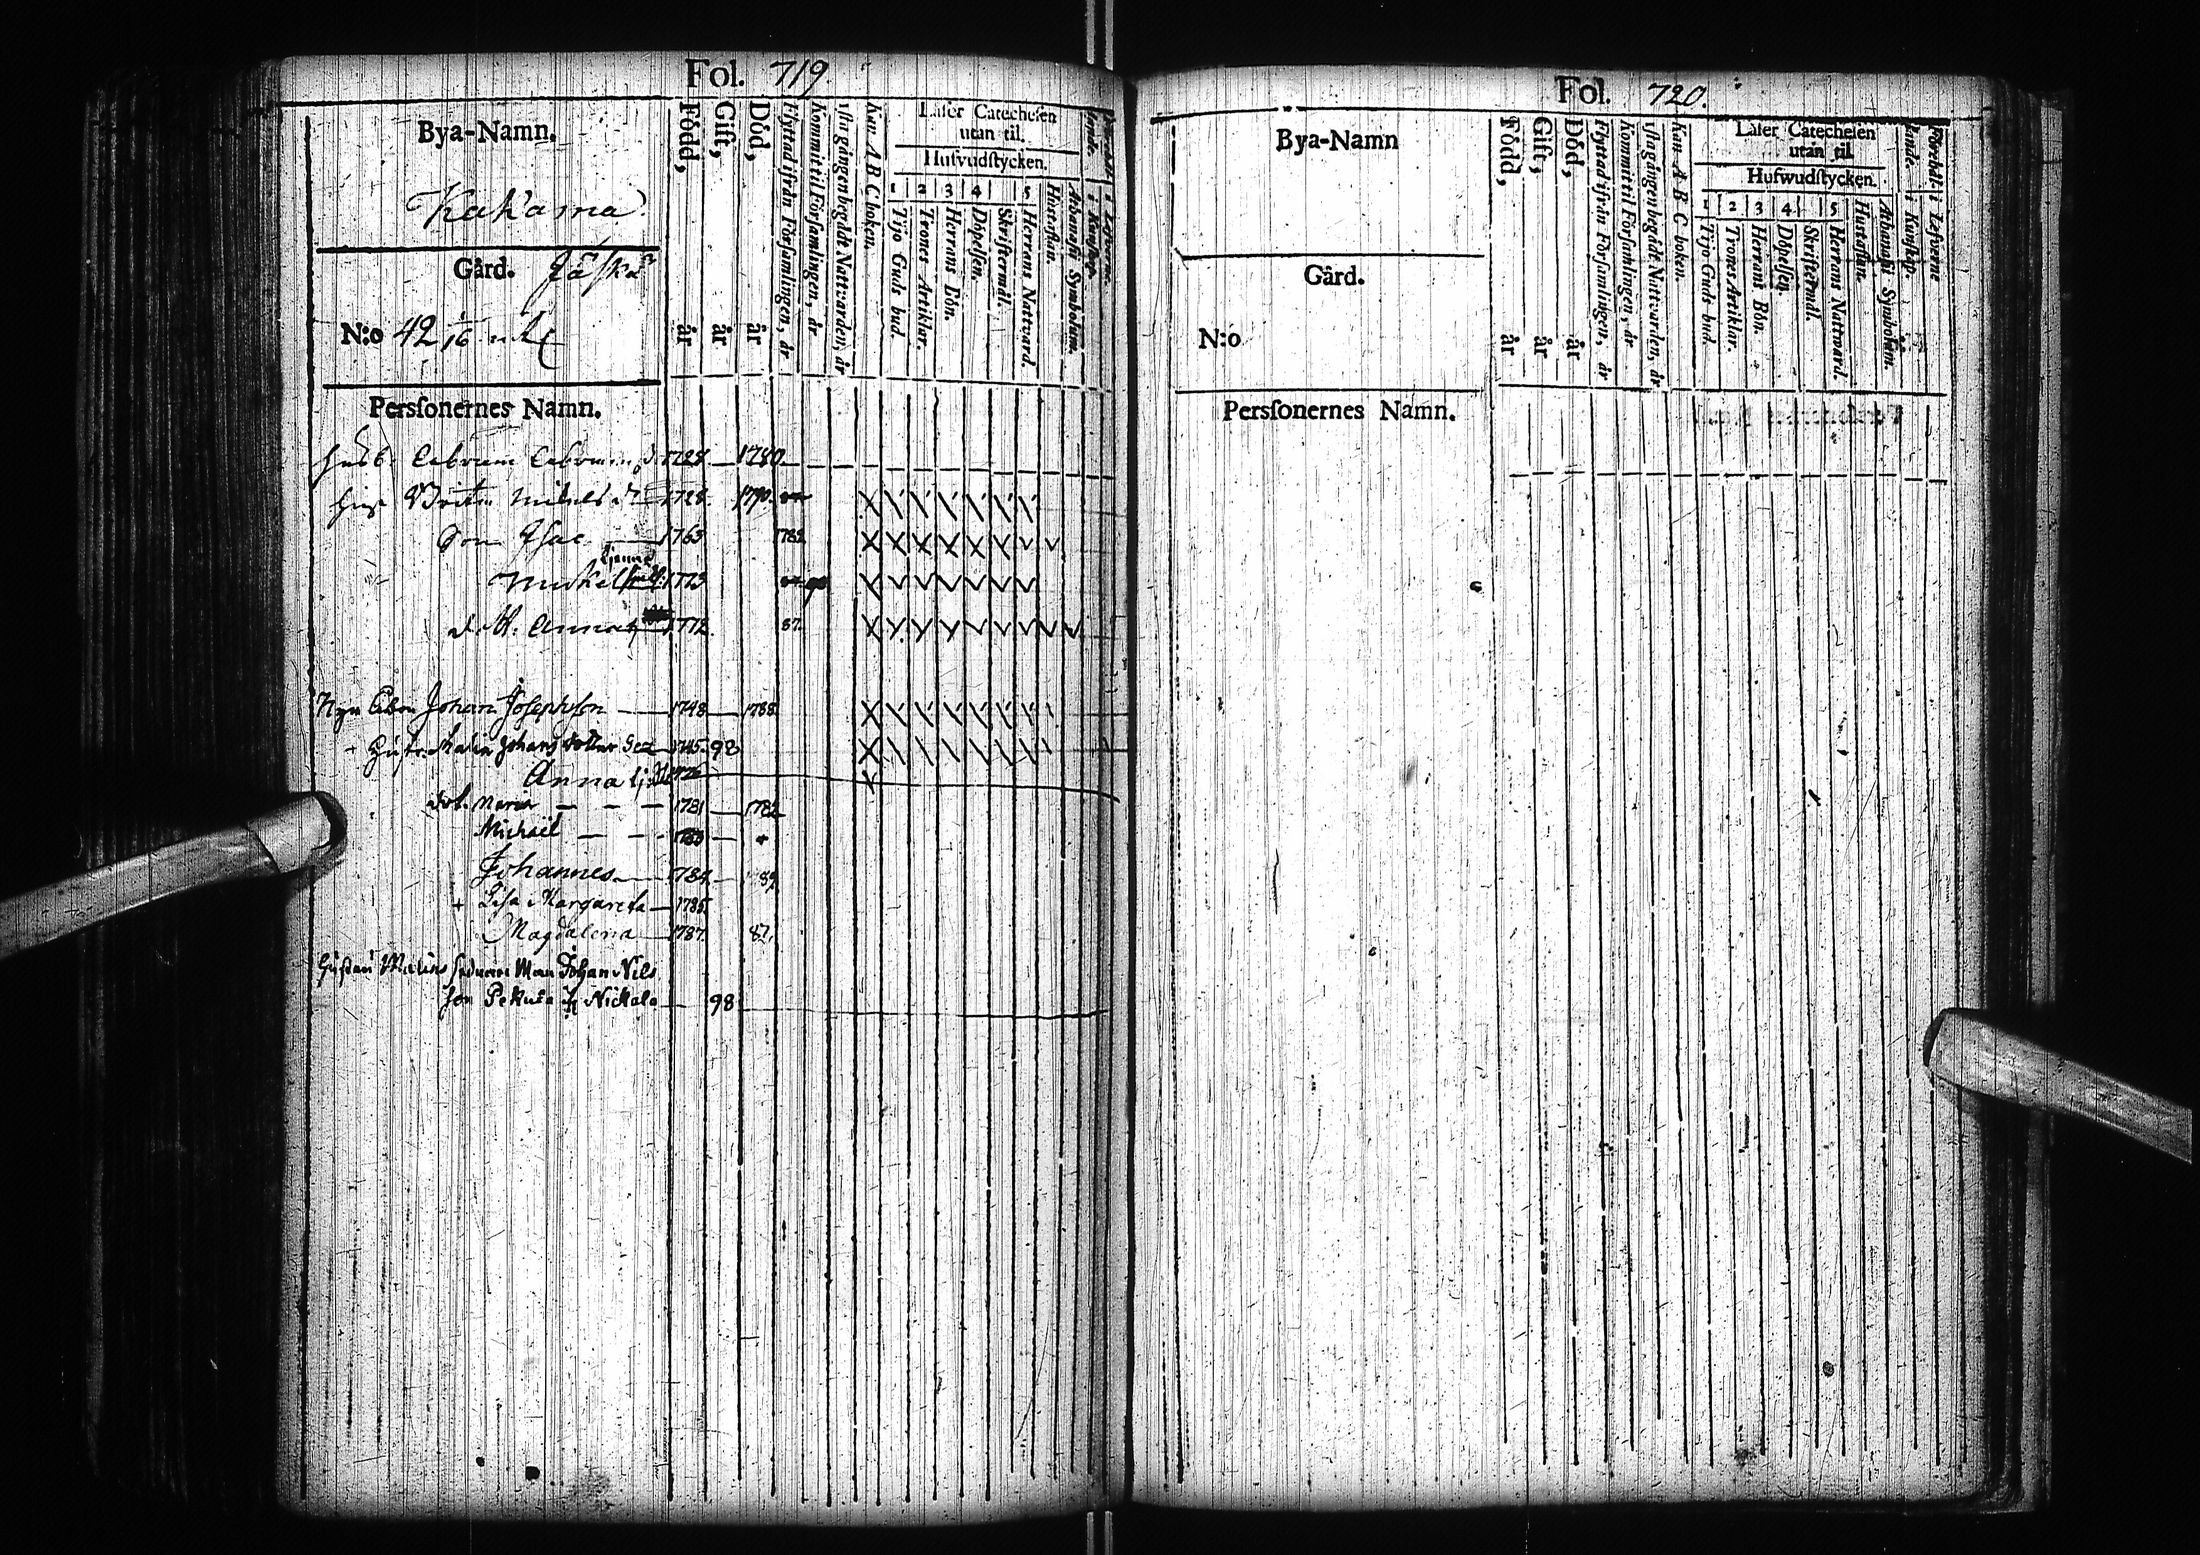 Fol. 719.
Bya-Namn.
Kakama.
Gård. Jäskä
N:o 42 1/16
Född, år
Gift, år
Död, år
Flyttad ifrån Församlingen, år
Kommit til Församlingen, år
1sta gången begådt Nattvarden, år
Kan A B C boken.
Läser Catechesen
utan til.
Hufvudstycken.
1 2 3 4 5
Tijo Guds bud.
Trones Artiklar.
Herrans Bön.
Döpelsen.
Skriftermål.
Herrans Nattvard.
Hustaflan.
Athanasii Symbolum.
Perssonernes Namn.
1728. 1780
1728. 1790.
Son Isac 1763 1782
Mickel 1773
dott. Anna 1772. 87.
Johan Josephsson 1748 1788
Malin Johans dotter 1745. 98
Anna
dot. Maria 1781 1782
Michaël 1783
Johannes 784 87
+ Lisa Margareta 1785
Magdalena 1787. 87.
Man Johan Nils
son Pekula Nickala 98
Fol. 720.
Bya-Namn
Gård.
N:o
Född, år
Gift, år
Död, år
Flyttad ifrån Församlingen, år
Kommit til Församlingen, år
1sta gången begådt Nattvarden, år
Kan A B C boken.
Läser Catechesen
utan til
Hufwudstycken.
1 2 3 4 5
Tijo Guds bud.
Trones Artiklar.
Herrans Bön.
Döpelsen.
Skriftermål.
Herrans Nattward.
Hustaflan.
Athanasii Symbolum.
Perssonernes Namn.